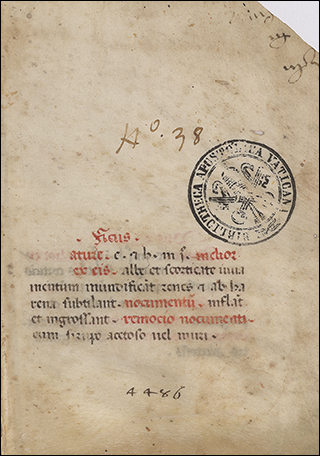 Nº. 38
BIBLIOTHECA APOSTOLICA VATICANA
Ficus
ature. c. & h. in s. melior
ex eis. albe et scorticate iuua
mentum mundificat renes & ab ha
rena subtilant nocumentū. inflat
et ingrossant. remocio nocumenti
cum sirupo acetoso uel muri.
4486